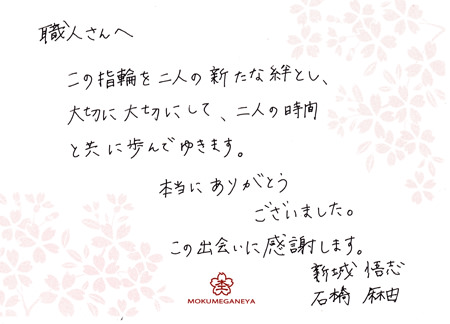 職人さんへ
この指輪を二人の新たな絆とし、
大切に大切にして、二人の時間
と共に歩んでゆきます。
本当にありがとう
ございました。
この出会いに感謝します。
新城 悟志
石橋 麻由
MOKUMEGANEYA